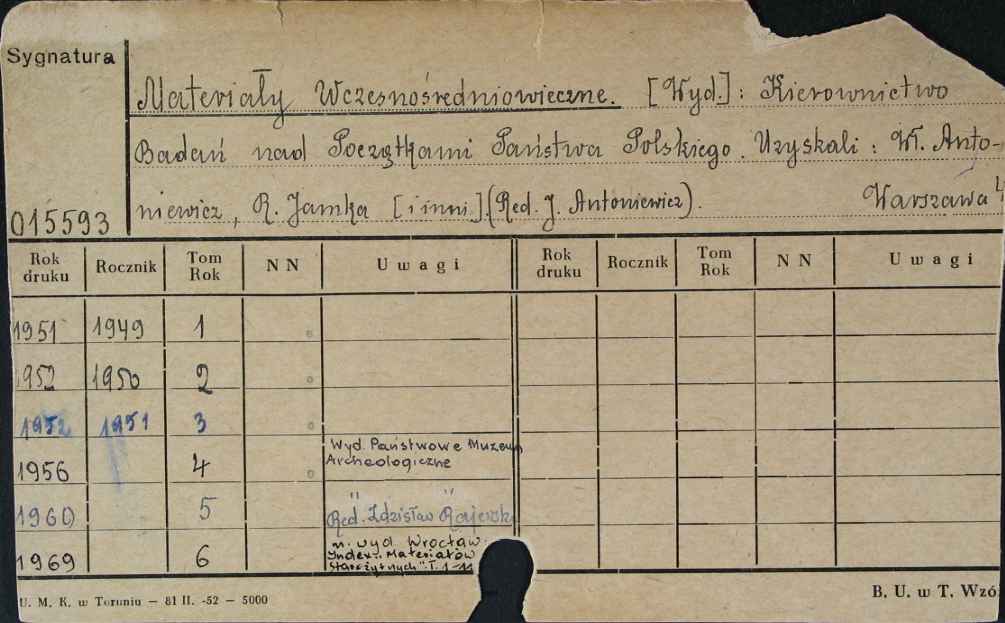 Sygnatura
Materiały Wczesnośredniowieczne. [Wyd.]: Kierownictwo
Badań nad Początkami Państwa Polskiego. Uzyskali: Wł. Anto-
015593 niewicz, R. Jamka [i inni.](Red. J. Antoniewicz). Warszawa
Rok druku Rocznik Tom Rok NN Uwagi Rok druku Rocznik Tom Rok NN Uwagi
1951 1949 1
1952 1950 2
1952 1951 3
1956 4 Wyd. Państwowe Muzeum
Archeologiczne
1960 5 " "
Red. Zdzisław Rajewski
1969 6 m. wyd. Wrocław.
Index: Materiałów
Starożytnych": T. 1-11
U. M. K. w Toruniu — 81 II. -52 — 5000 B. U. w T. Wzó